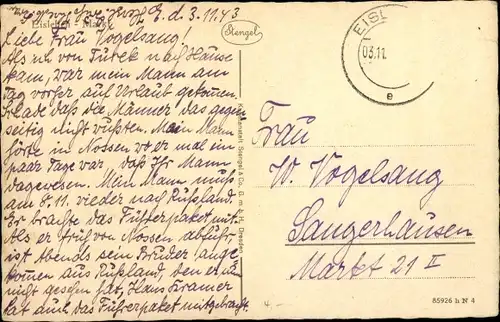 E. d. 3.11.43
Eisleben
Liebe Frau Vogelsang!
Als ich von Turek nach Hause
kam, war mein Mann am
Tag vorher auf Urlaub gekommen.
Schade daß die Männer das gegen-
seitig nicht wußten. Mein Mann
hörte in Nossen wo er mal ein
paar Tage war, daß Ihr Mann
dagewesen. Mein Mann muß
am 8.11. wieder nach Rußland.
Er brachte das Führerpaket mit.
Als er früh von Nossen abfuhr,
ist Abends sein Bruder ange-
kommen aus Rußland, den er nun
nicht gesehen hat, Hans Kramer
hat auch das Führerpaket mitgebracht.
Stengel
Kunstanstalt Stengel & Co. G. m. b. H., Dresden
EISL
03.11.
e
Frau
W. Vogelsang
Sangerhausen
Markt 21 II
85926 h N 4
4.-